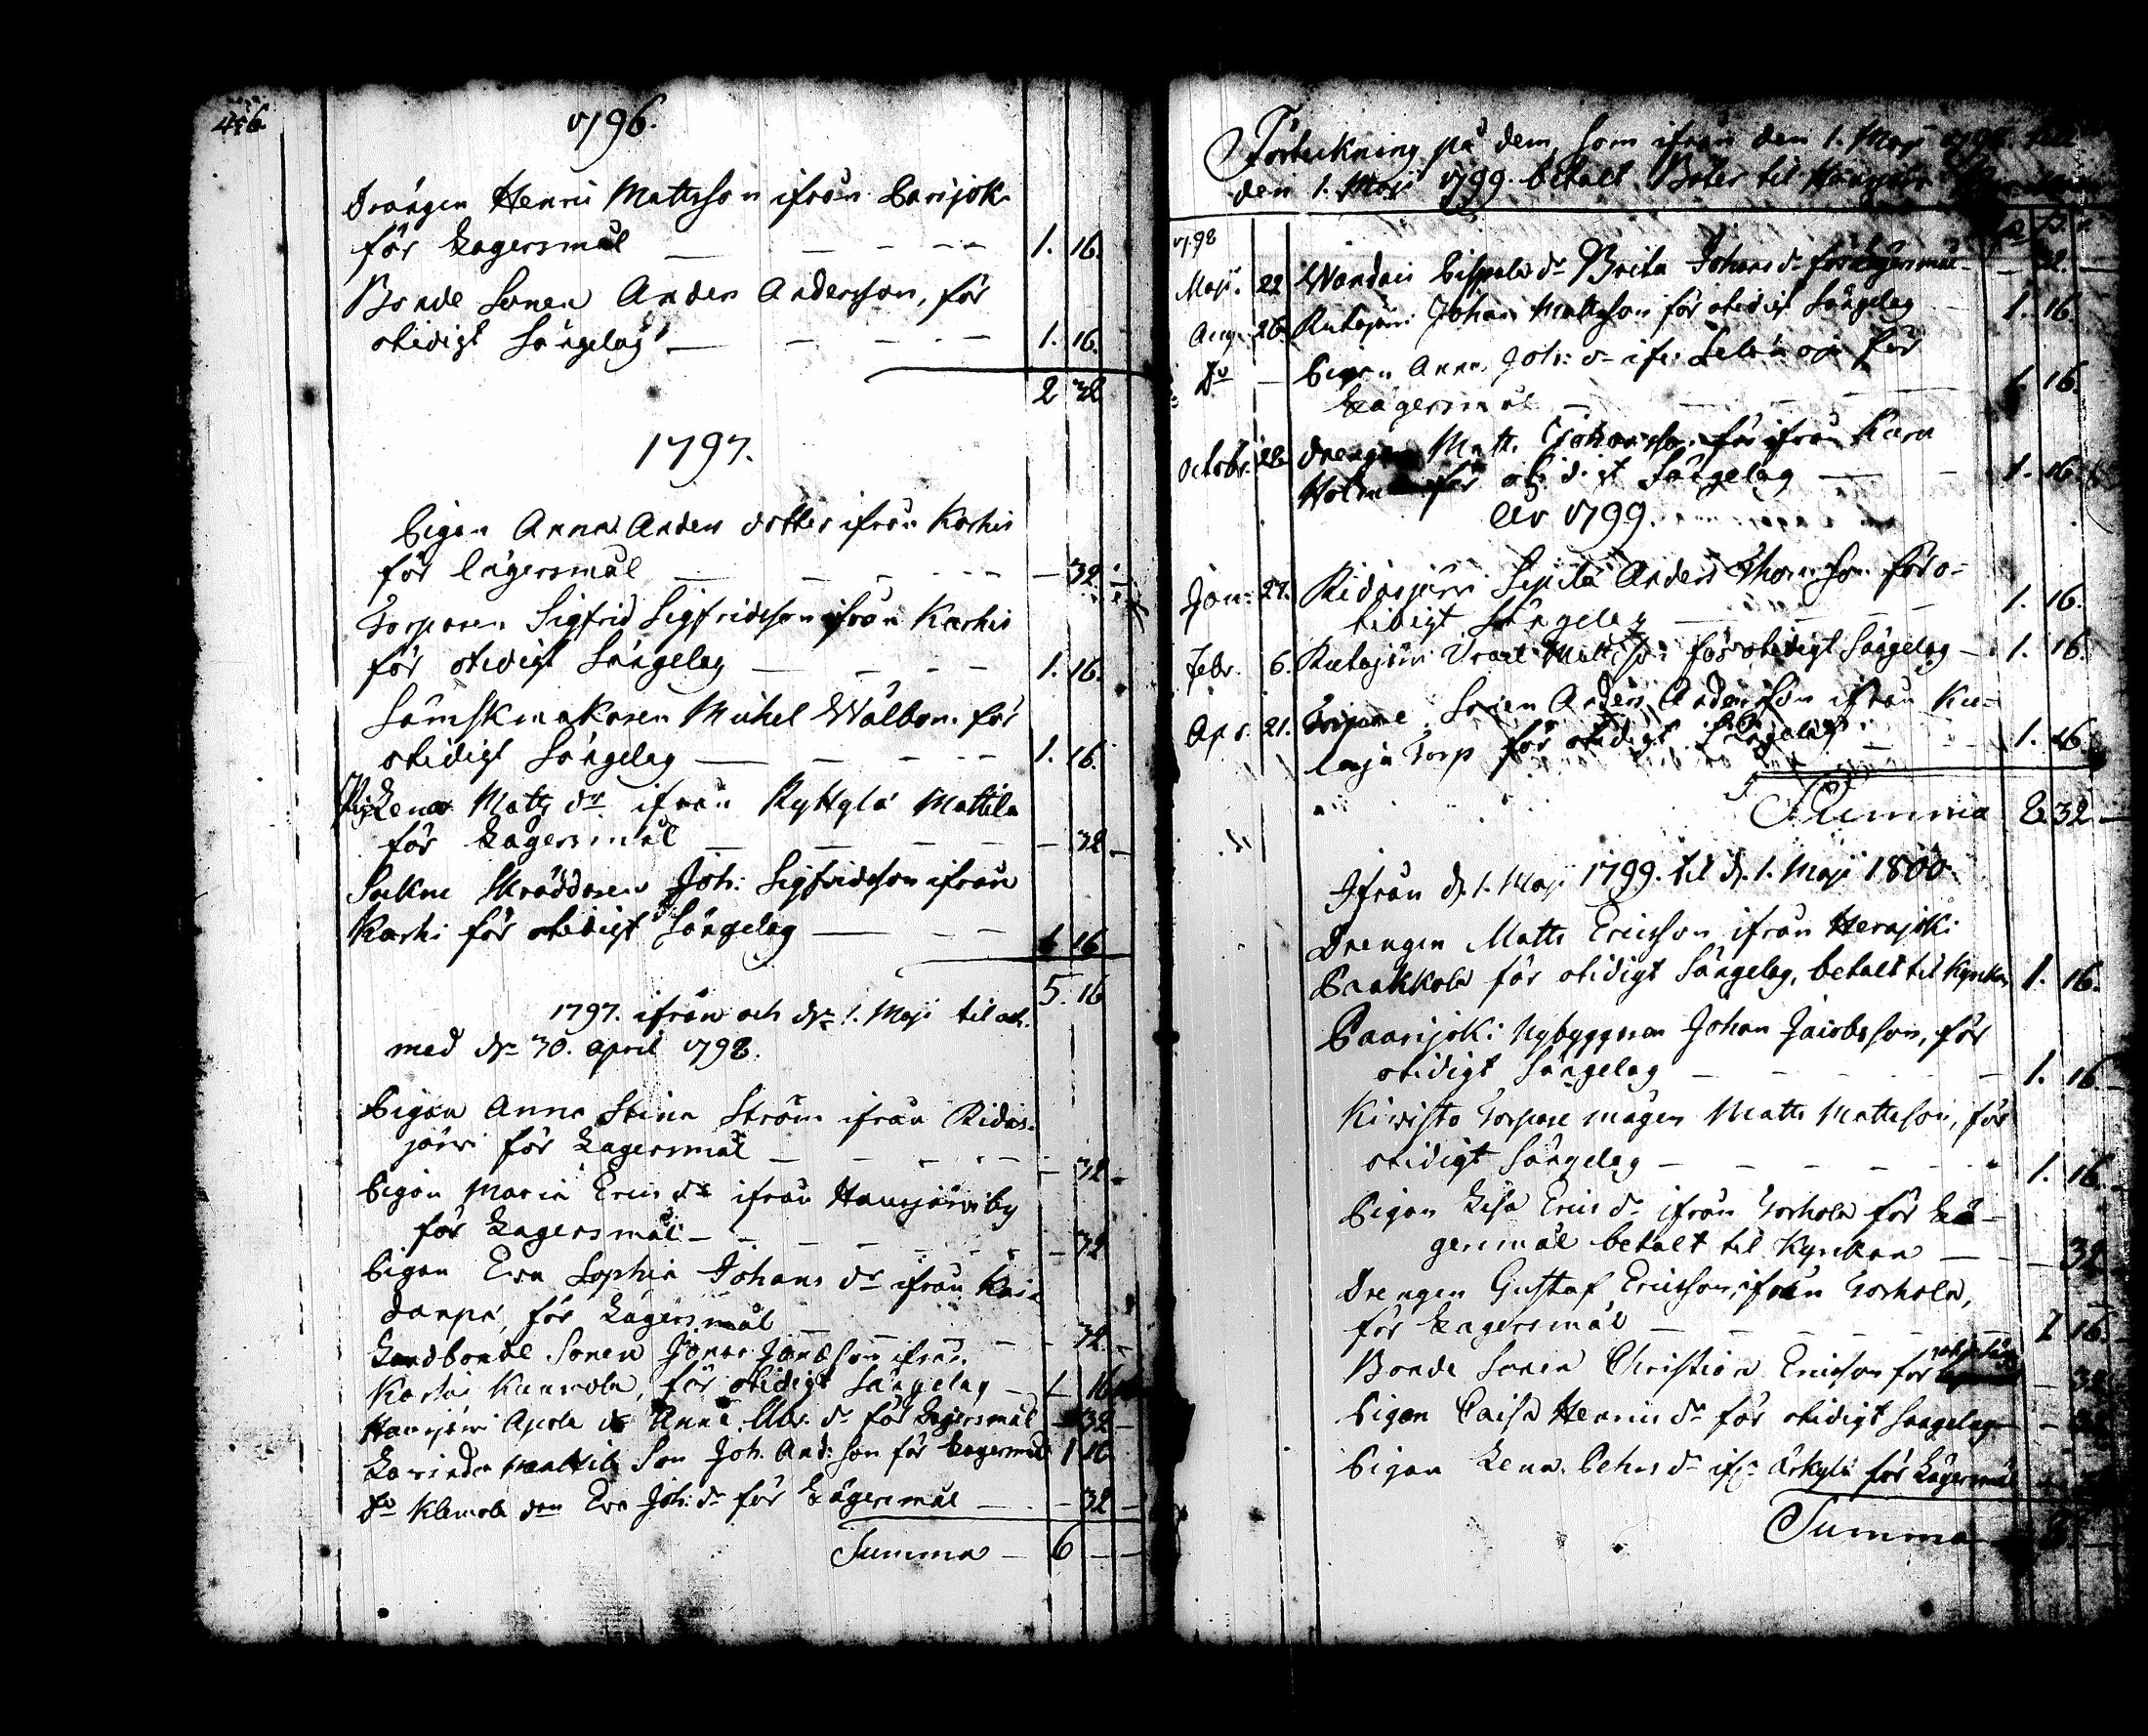 1796.
Drängen Henric Mattsson ifrån Parijoki
för Lägersmål — — — — 1. 16.
Bonde Sonen Anders Andersson, för
otidigt Sängelag — — — — 1. 16.
2 32
1797.
Pigan Anna Anders dotter ifrån Karhis
för lägersmål — — — — 32. —
Torparen Sigfrid Sigfridsson ifrån Karhis
för otidigt Sängelag — — — 1. 16.
Sämskmakaren Michel Wålbom för
otidigt Sängelag — — — — 1. 16.
Pig Lena Matts dr ifrån Ryttylä Mattila
för Lägersmål — — — — 32 —
Sockne Skräddaren Joh: Sigfridsson ifrån
Karhi för otidigt Sängelag — — — 1 16
5. 16
1797. ifrån och dn 1. Maji til och
med dn 30. April 1798.
Pigan Anna Stina Ström ifrån Ridas-
järvi för Lägersmål — — — — 32 —
Pigan Maria Erics dr ifrån Hausjärvi by
för Lägersmål — — — — 32
Pigan Eva Sophia Johans dr ifrån
för Lägersmål — — — — 32 —
Landbonde Sonen Jonas ifrån
Karhis för otidigt Sängelag — 1 16
Hausjärvi Anna dr för Lägersmål — 32 —
Mattila Son Joh. And: son för Lägersmål 1 16
Do Klemola Eva Joh: dr för Lägersmål — — 32 —
Summa — 6 — —
Förteckning på dem, som ifrån den 1. Maji 1798. till
den 1. Maji 1799. betalt Böter til Hausjärvi
1798
Maji. 22 Brita Johans dr för Lägersmål — 32. —
Aug. 26. Johan Mattsson för otidigt Sängelag — 1. 16.
Do — Pigan Anna Joh: dr för
Lägersmål — — — — 1. 16.
Octobr. 26. Drengen Matts Johansson ifrån Kara
för otidigt Sängelag — — 1. 16.
År 1799.
Jan: 27. Ridasjärvi Sipilä Anders Thomsson för o-
tidigt Sängelag — — — 1. 16.
Febr. 6. för otidigt Sängelag — 1. 16.
Apr. 21. Torpare Sonen Anders Andersson ifrån
Torp för otidigt Sängelag — — 1. 16
Summa 8 32 —
Ifrån d. 1. Maji 1799. til d. 1. Maji 1800.
Drengen Matts Ericsson ifrån Herajoki
Paakkola för otidigt Sängelag, betalt til Kyrkan 1. 16.
Paarijoki Nybyggaren Johan Jacobsson, för
otidigt Sängelag — — — — 1. 16.
Kivistö Torpare mågen Matts Mattsson, för
otidigt Sängelag — — — — 1. 16.
Pigan Lisa Erics dr ifrån Torhola för Lä-
gersmål betalt til Kyrkan — — 32 —
Drengen Gustaf Ericsson, ifrån Torhola,
för Lägersmål — — — — 1 16.
Bonde Sonen Christian Ericsson för — 32
Pigan Caisa Henrics dr för otidigt Sängelag — — 32
Pigan Lena dr ifr. Arkylä för Lägersmål
Summa